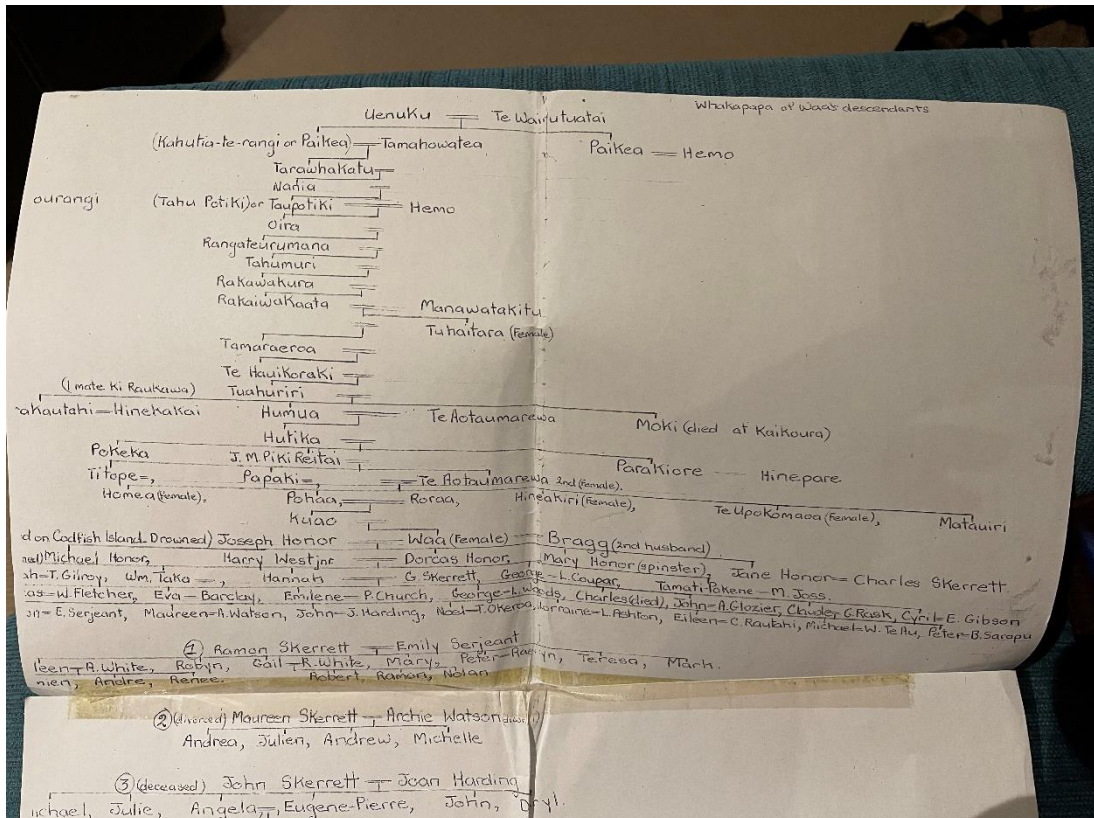 Whakapapa of Waa's descendants
Uenuku = Te Wairutuatai
(Kahutia-te-rangi or Paikea) = Tamahowatea Paikea = Hemo
Tarawhakatu
Nania
ourangi (Tahu Potiki) or Taupotiki = Hemo
Oira
Rangateurumana
Tahumuri
Rakawakura
Rakaiwakaata Manawatakitu
Tuhaitara (Female)
Tamaraeroa
Te Hauikoraki
(I mate Ki Raukawa) Tuahuriri
akautahi — Hinekakai Humua = Te Aotaumarewa Moki (died at Kaikoura)
Hutika
Pokeka J. M. Piki Reitai Parakiore — Hinepare
Titope =, Papaki =, Te Aotaumarewa 2nd (female).
Homea (female), Pohaa, = Roraa, Hineakiri (Female), Te Upokomaoa (Female), Matauiri
Kuao
d on Codfish Island. Drowned) Joseph Honor Waa (Female) Bragg (2nd husband)
Michael Honor, Harry West jnr Dorcas Honor, Mary Honor (spinster), Jane Honor = Charles Skerrett.
ah=T. Gilroy, Wm. Taka —, Hannah G Skerrett, George — L. Coupar, Tamati Pokene — M. Joss.
as—W. Fletcher, Eva — Barclay, Emilene — P. Church, George — L. Woods, Charles (died), John — A. Glozier, Claude, G. Rask, Cyril — E. Gibson
on — E. Serjeant, Maureen — A. Watson, John — J. Harding, Noel — T. Okeroa, Lorraine — L. Ashton, Eileen — C. Rautahi, Michael — W. Te Au, Peter — B. Sarapu
① Ramon Skerrett Emily Serjeant
leen — A. White, Robyn, Gail — R. White, Mary, Peter — Raelyn, Teresa, Mark.
nien, Andre, Renee. Robert, Ramon, Nolan
② (divorced) Maureen Skerrett Archie Watson
Andrea, Julien, Andrew, Michelle
③ (deceased) John Skerrett Joan Harding
ichael, Julie, Angela, Eugene-Pierre, John, Dryl.